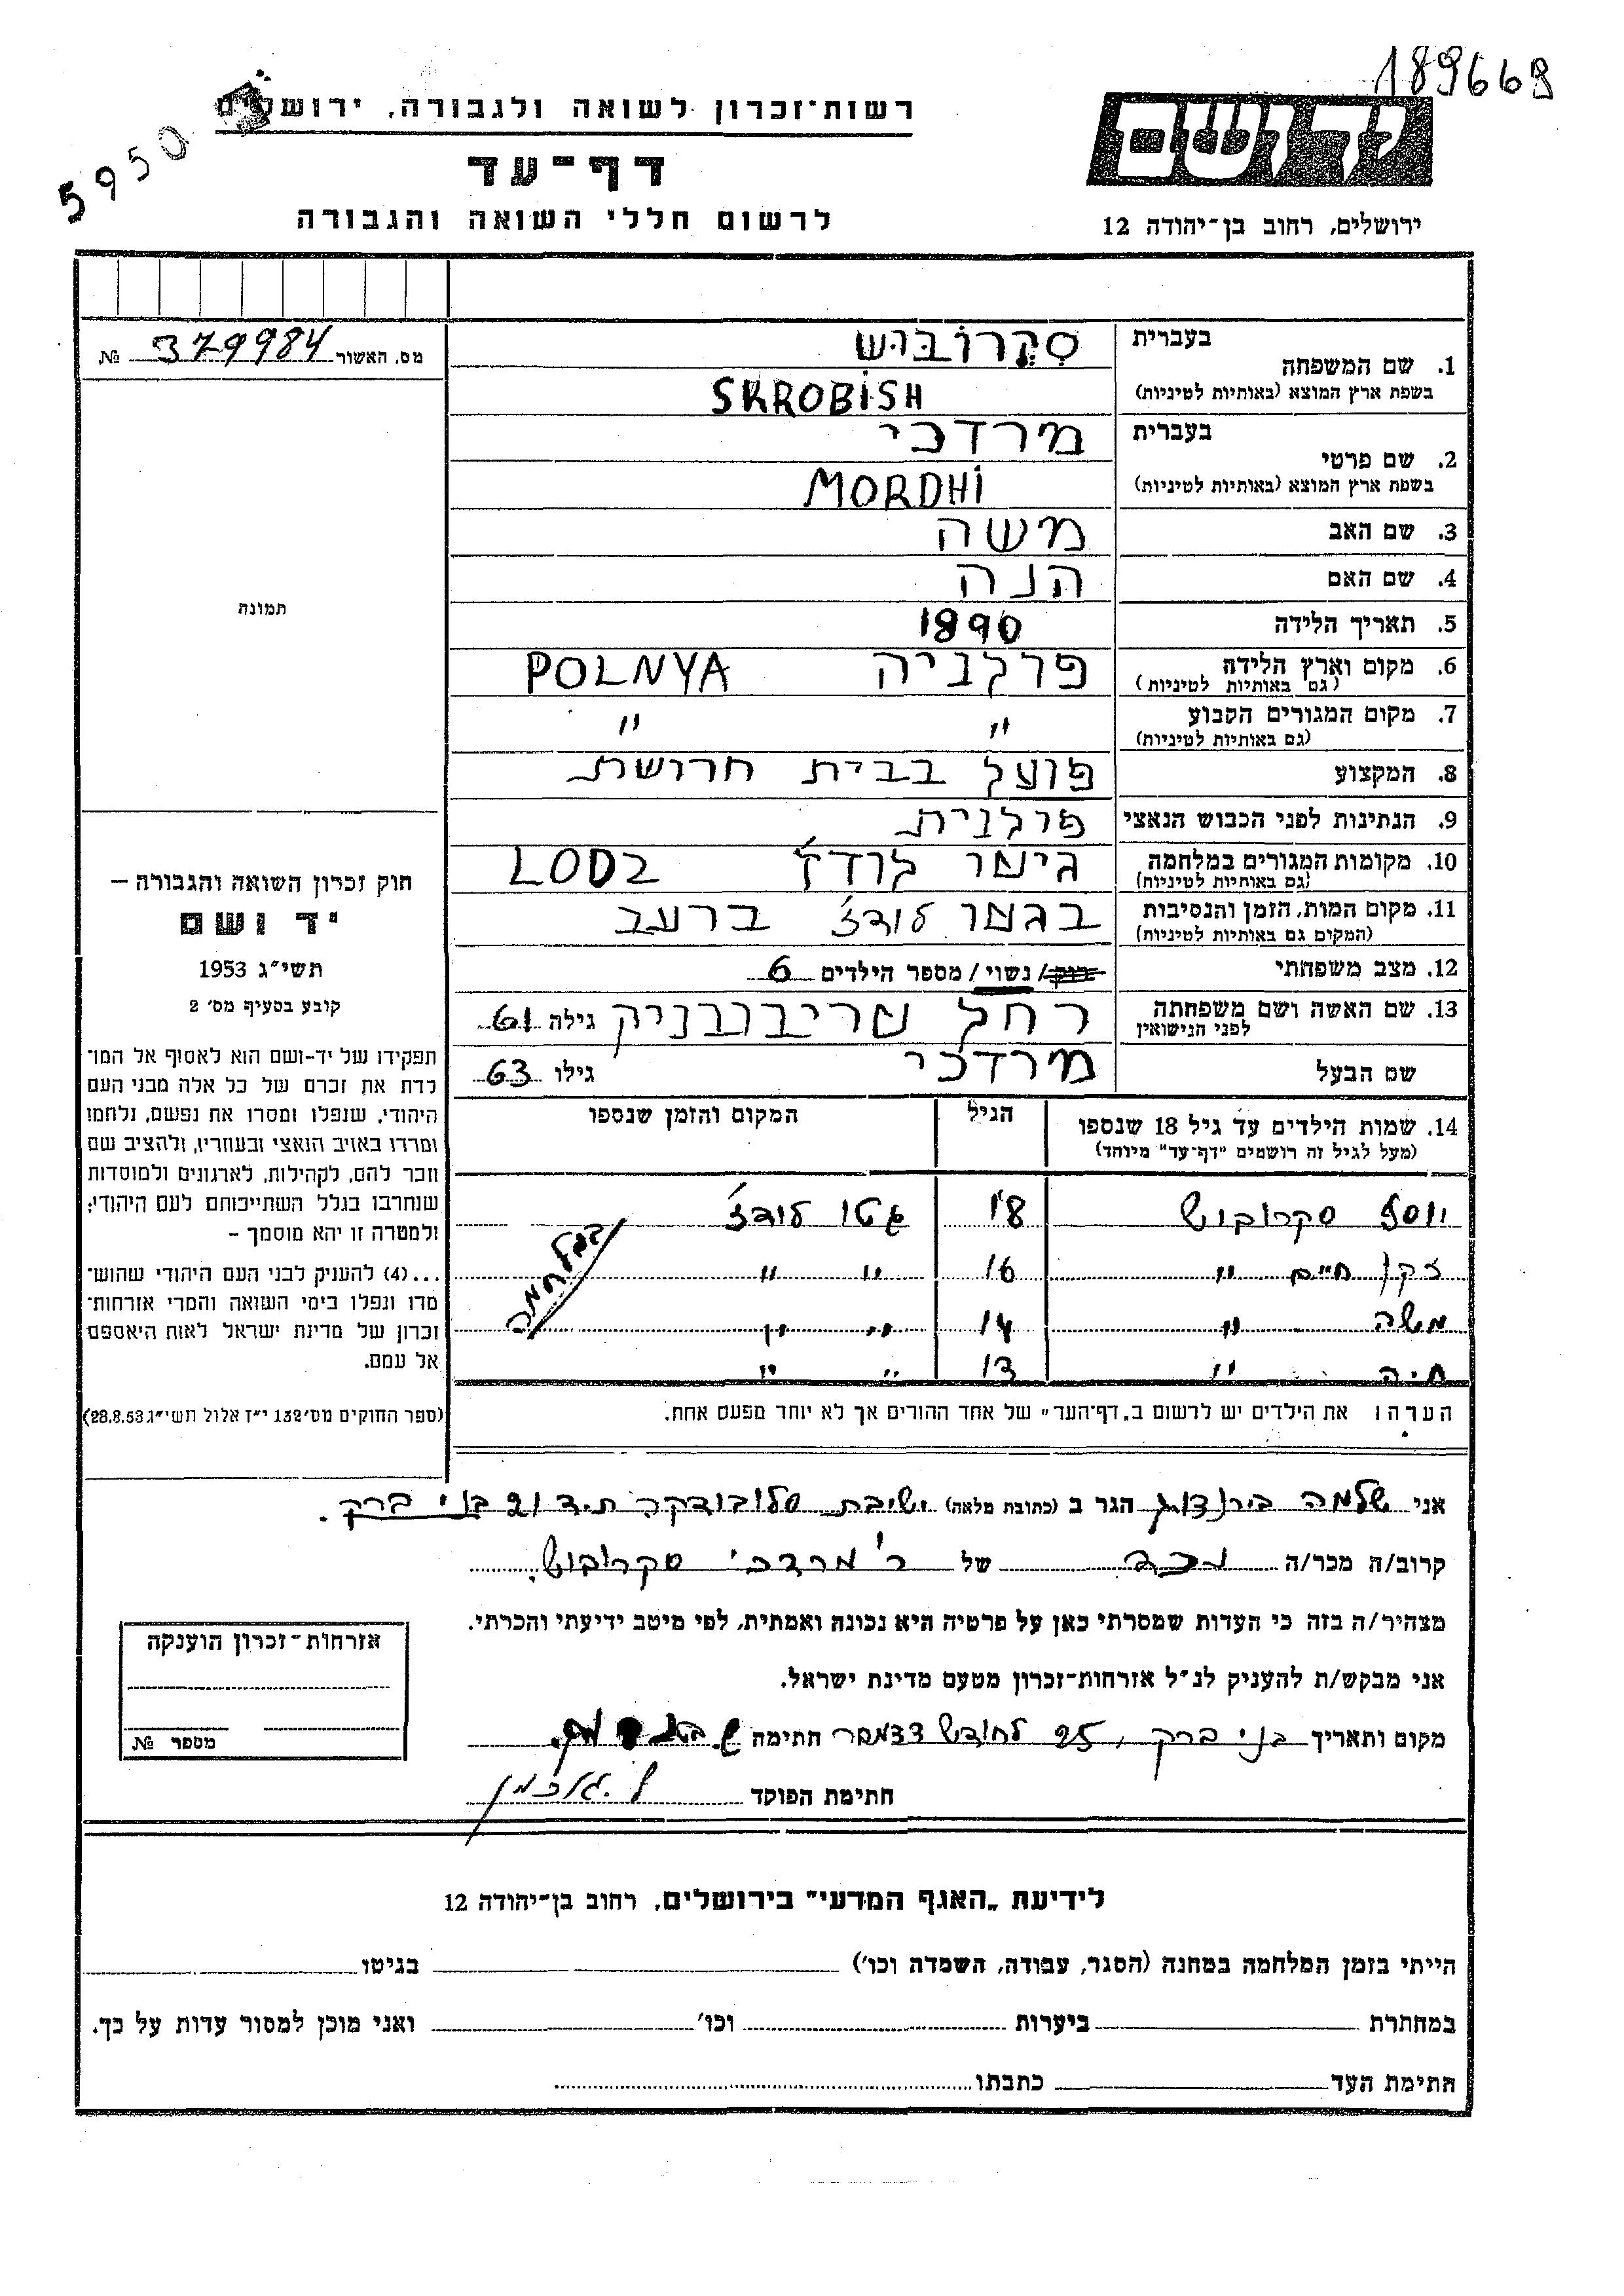 189668
5950
רשות־זכרון לשואה ולגבורה, ירושלים
דף־עד
לרשום חללי השואה והגבורה
יד ושם
ירושלים, רחוב בן־יהודה 12
מס. האשור 379984 №
תמונה
חוק זכרון השואה והגבורה –
יד ושם
תשי״ג 1953
קובע בסעיף מס׳ 2
תפקידו של יד-ושם הוא לאסוף אל המו־
לדת את זכרם של כל אלה מבני העם
היהודי, שנפלו ומסרו את נפשם, נלחמו
ומרדו באויב הנאצי ובעוזריו, ולהציב שם
וזכר להם, לקהילות, לארגונים ולמוסדות
שנחרבו בגלל השתייכותם לעם היהודי;
ולמטרה זו יהא מוסמך –
...(4) להעניק לבני העם היהודי שהוש־
מדו ונפלו בימי השואה והמרי אזרחות־
זכרון של מדינת ישראל לאות היאספם
אל עמם.
(ספר החוקים מס׳ 132 י״ז אלול תשי״ג 28.8.53)
1. שם המשפחה
בעברית סקרוביש
בשפת ארץ המוצא (באותיות לטיניות) SKROBISH
2. שם פרטי
בעברית מרדכי
בשפת ארץ המוצא (באותיות לטיניות) MORDHI
3. שם האב משה
4. שם האם הנה
5. תאריך הלידה 1890
6. מקום וארץ הלידה פולניה POLNYA
(גם באותיות לטיניות)
7. מקום המגורים הקבוע " "
(גם באותיות לטיניות)
8. המקצוע פועל בבית חרושת
9. הנתינות לפני הכבוש הנאצי פולנית
10. מקומות המגורים במלחמה גיטו לודז' LODZ
(גם באותיות לטיניות)
11. מקום המות, הזמן והנסיבות בגטו לודז' ברעב
(המקום גם באותיות לטיניות)
12. מצב משפחתי רווק/נשוי/ מספר הילדים 6
13. שם האשה ושם משפחתה רחל גילה 61
לפני הנישואין
שם הבעל מרדכי גילו 63
14. שמות הילדים עד גיל 18 שנספו הגיל המקום והזמן שנספו
(מעל לגיל זה רושמים "דף־עד" מיוחד)
יוסף סקרוביש 18 גטו לודז'
חיים " 16 " "
משה " 14 " "
חיה " 13 " "
במלחמה
הערה: את הילדים יש לרשום ב„דף־העד״ של אחד ההורים אך לא יותר מפעם אחת.
אני שלמה הגר ב (כתובת מלאה) ישיבת סלובודקה ת.ד 21 בני ברק.
קרוב/ה מכר/ה נכד של ר' מרדכי סקרוביש.
מצהיר/ה בזה כי העדות שמסרתי כאן על פרטיה היא נכונה ואמתית, לפי מיטב ידיעתי והכרתי.
אני מבקש/ת להעניק לנ״ל אזרחות־זכרון מטעם מדינת ישראל.
מקום ותאריך בני ברק, 25 לחודש דצמבר חתימה
חתימת הפוקד
אזרחות־זכרון הוענקה
מספר №
לידיעת „האגף המדעי״ בירושלים, רחוב בן־יהודה 12
הייתי בזמן המלחמה במחנה (הסגר, עבודה, השמדה וכו׳) בגיטו
במחתרת ביערות וכו׳ ואני מוכן למסור עדות על כך.
חתימת העד כתבתו